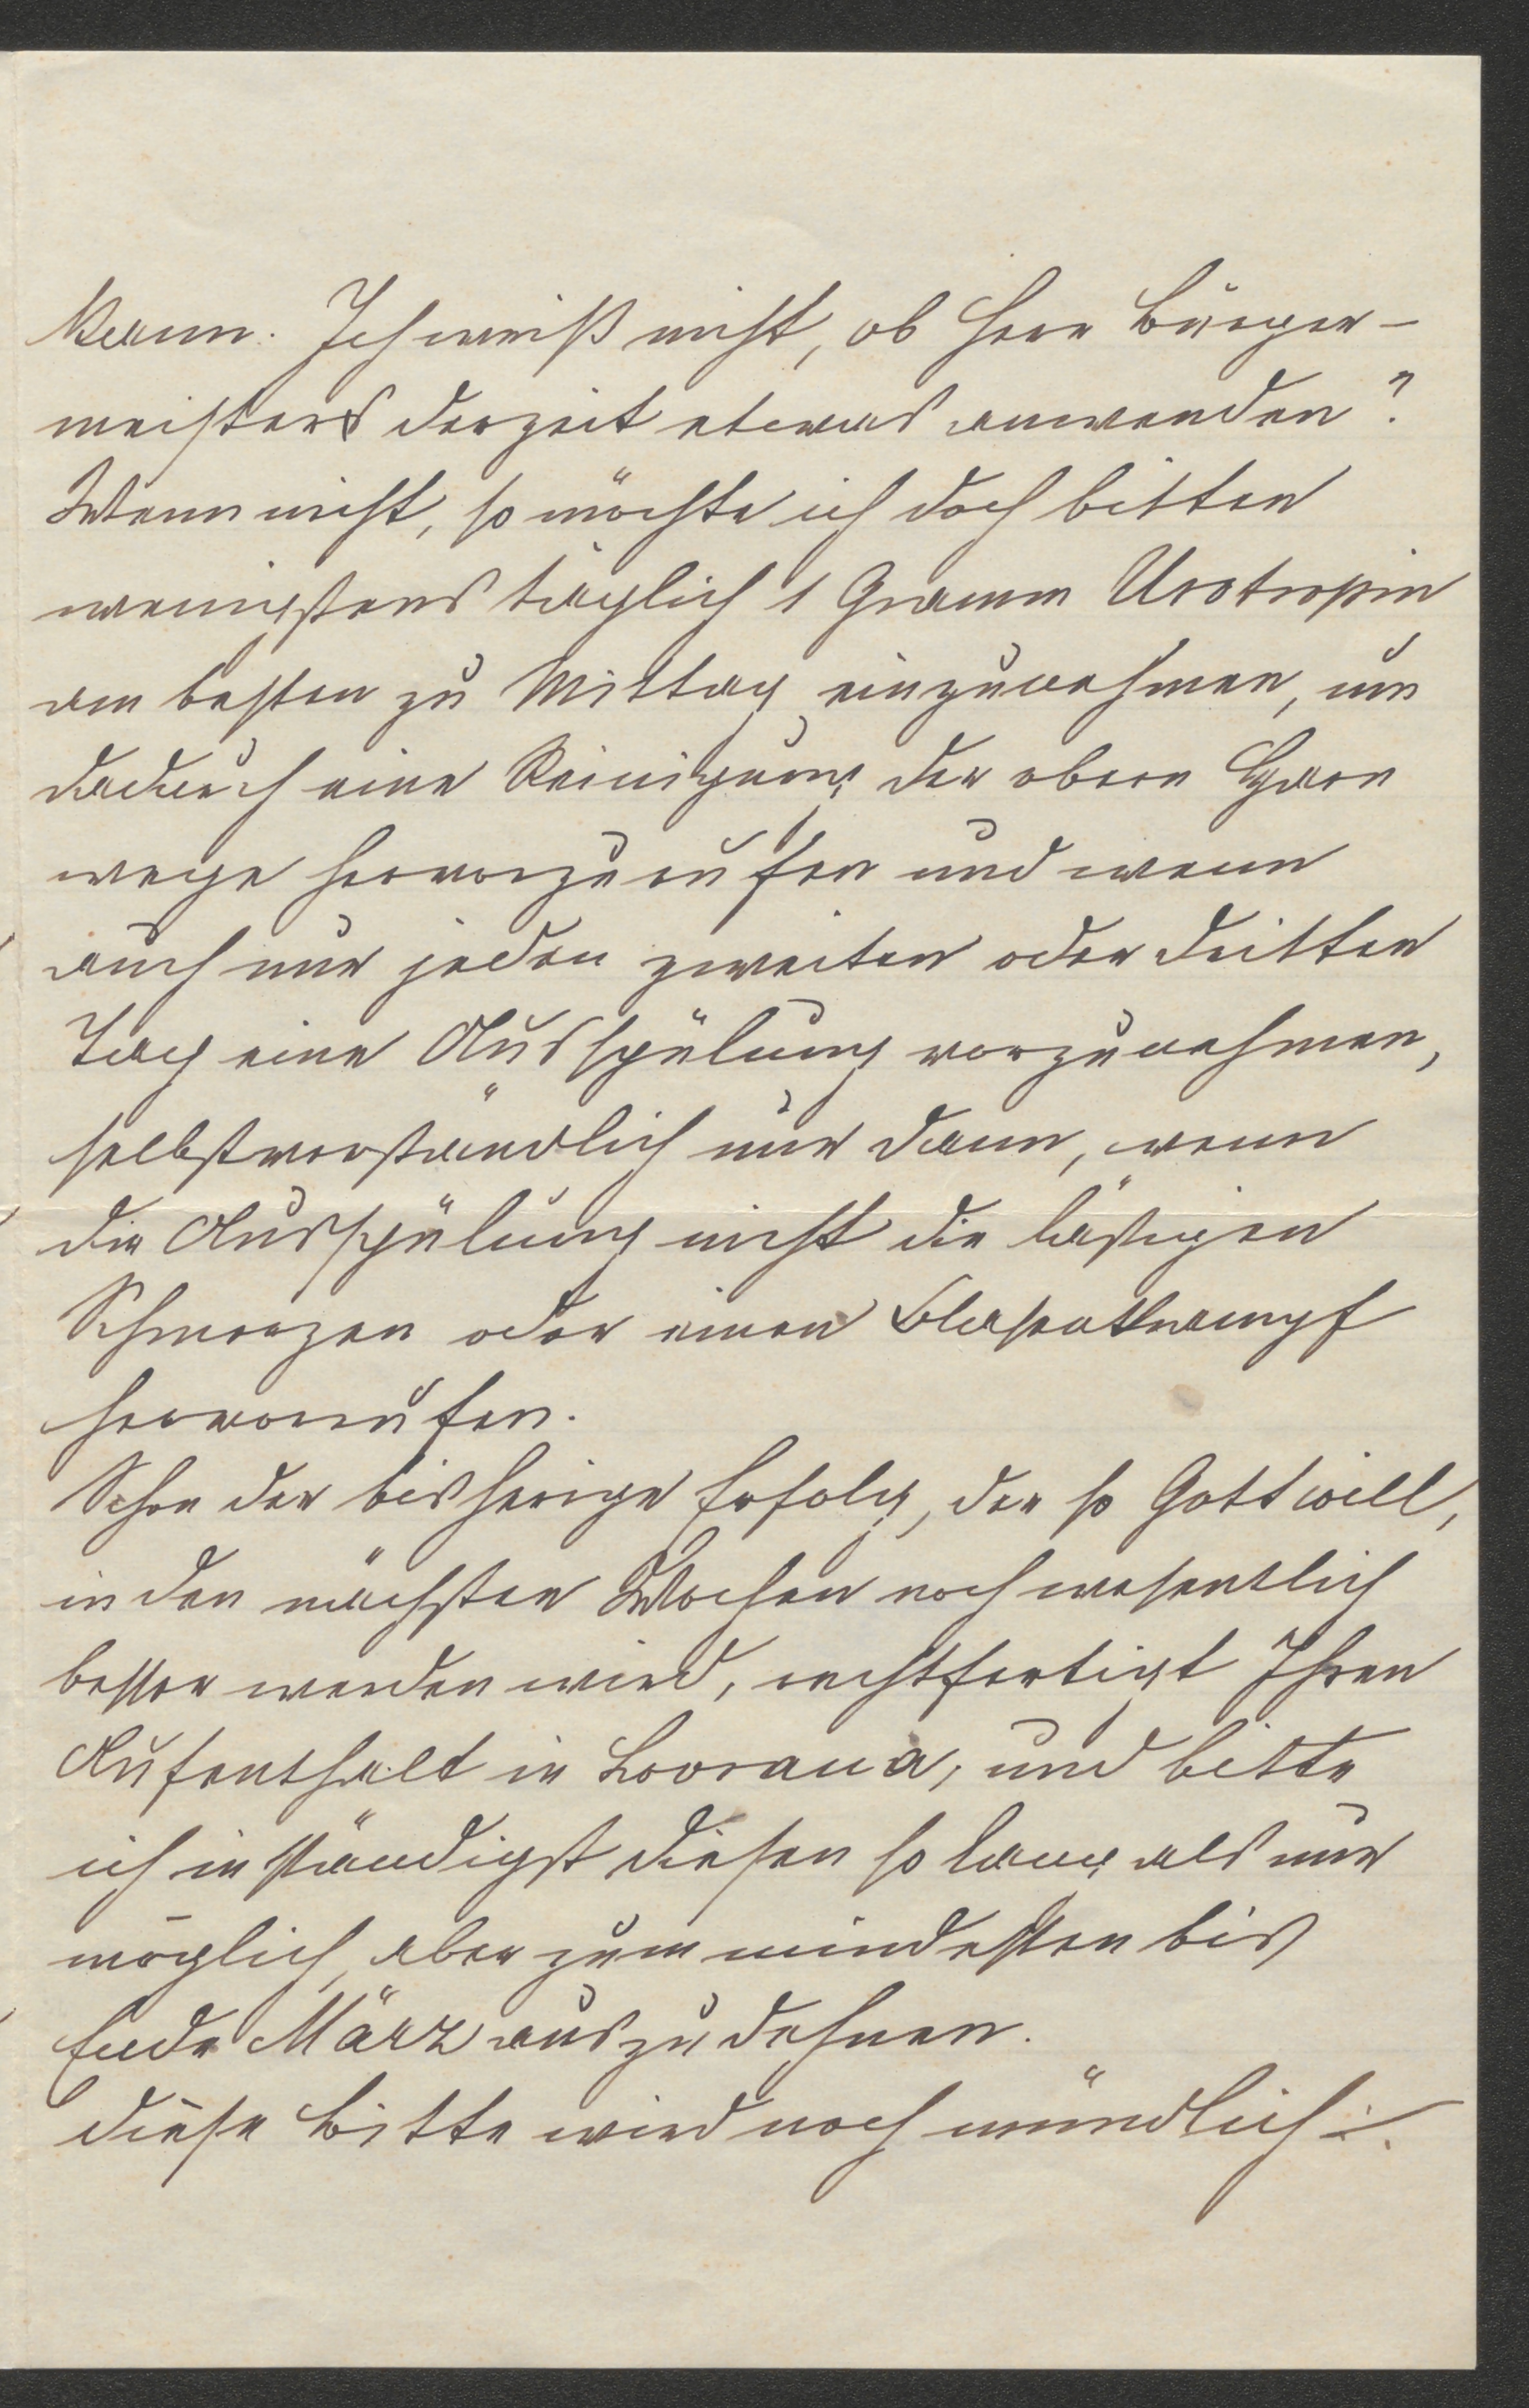 kann. Ich weiß nicht, ob Herr Bürger-
meisters derzeit etwas anwenden?
Wenn nicht, so möchte ich doch bitten
wenigstens täglich 1 Gramm Urotropin
am besten zu Mittag einzunehmen, um
dadurch eine Reinigung der obern Harn
wege hervorzurufen und wenn
auch nur jeden zweiten oder dritten
Tag eine Ausspülung vorzunehmen,
selbstverständlich nur dann, wenn
die Ausspülung nicht die lästigen
Schmerzen oder einen Blasenkrampf
hervorrufen.
Schon der bisherige Erfolg, der so Gott will,
in den nächsten Wochen noch wesentlich
besser werden wird, rechtfertigt Ihren
Aufenthalt in Lovrana, und bitte
ich inständigst diesen so lang als nur
möglich, aber zum mindesten bis
Ende März auszudehnen.
Diese Bitte wird noch mündlich ./.